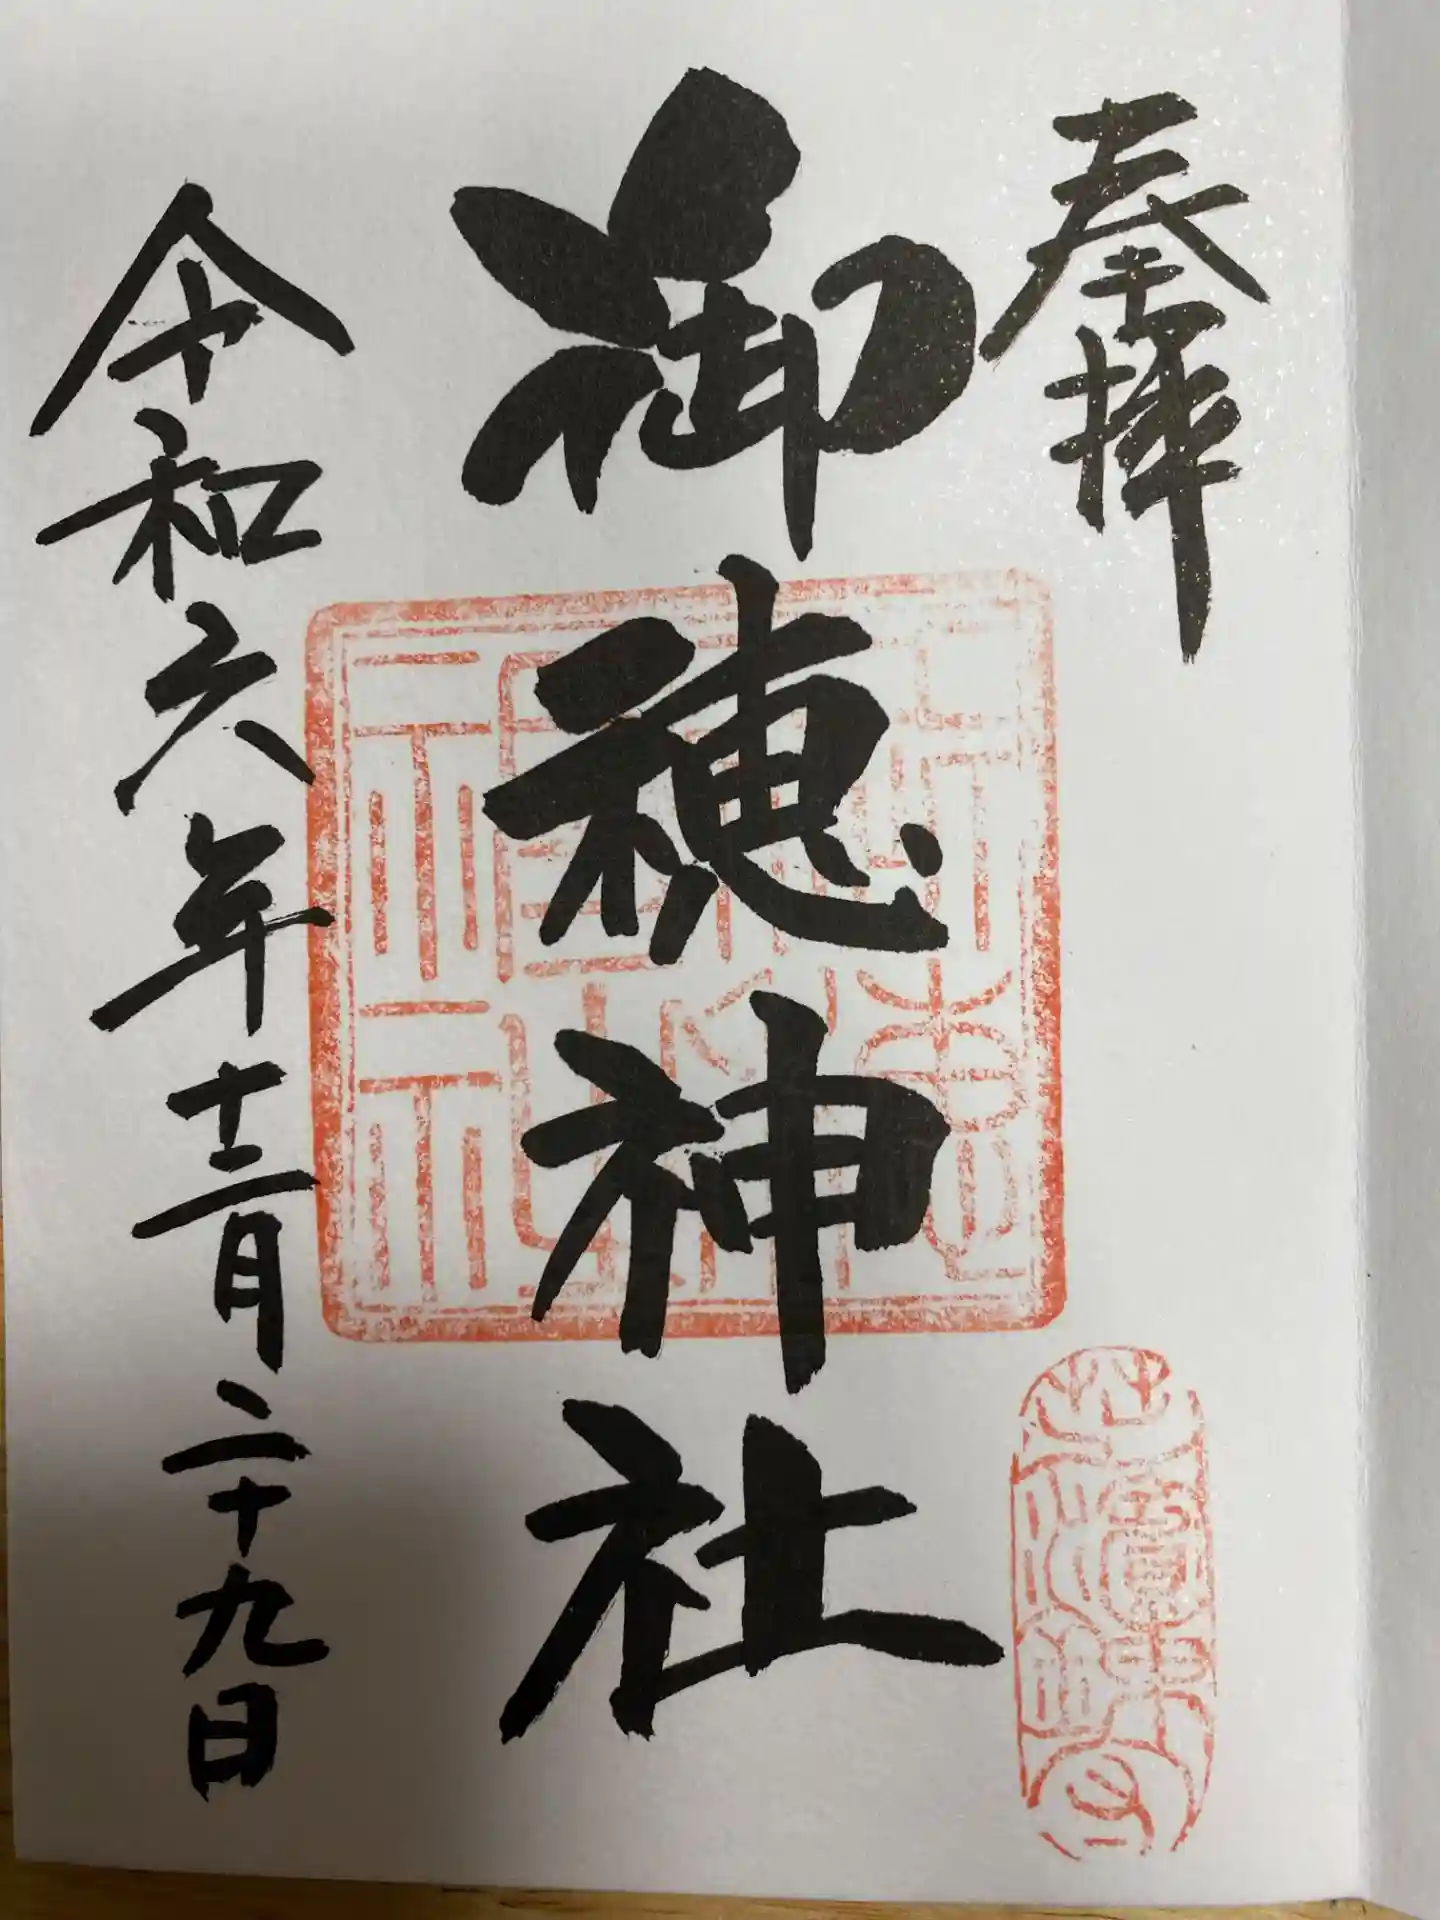 奉拝
御穂神社
令和六年十二月二十九日